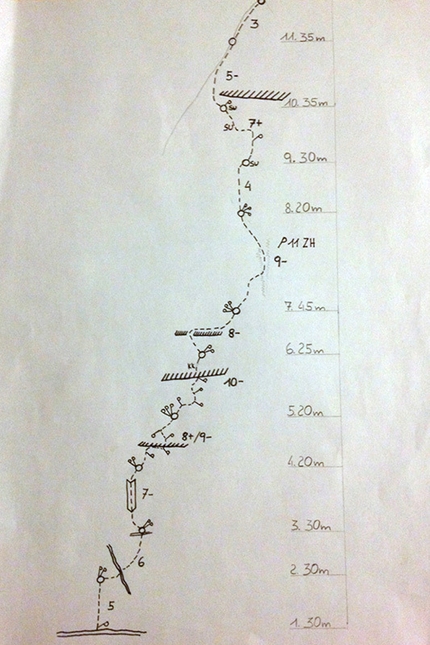 3
11. 35m
5-
10. 35m
SU
SU
7+
9. 30m
SU
4
8. 20m
P 11 ZH
9-
7. 45m
8-
6. 25m
10-
5. 20m
8+/9-
4. 20m
7-
3. 30m
6
2. 30m
5
1. 30m